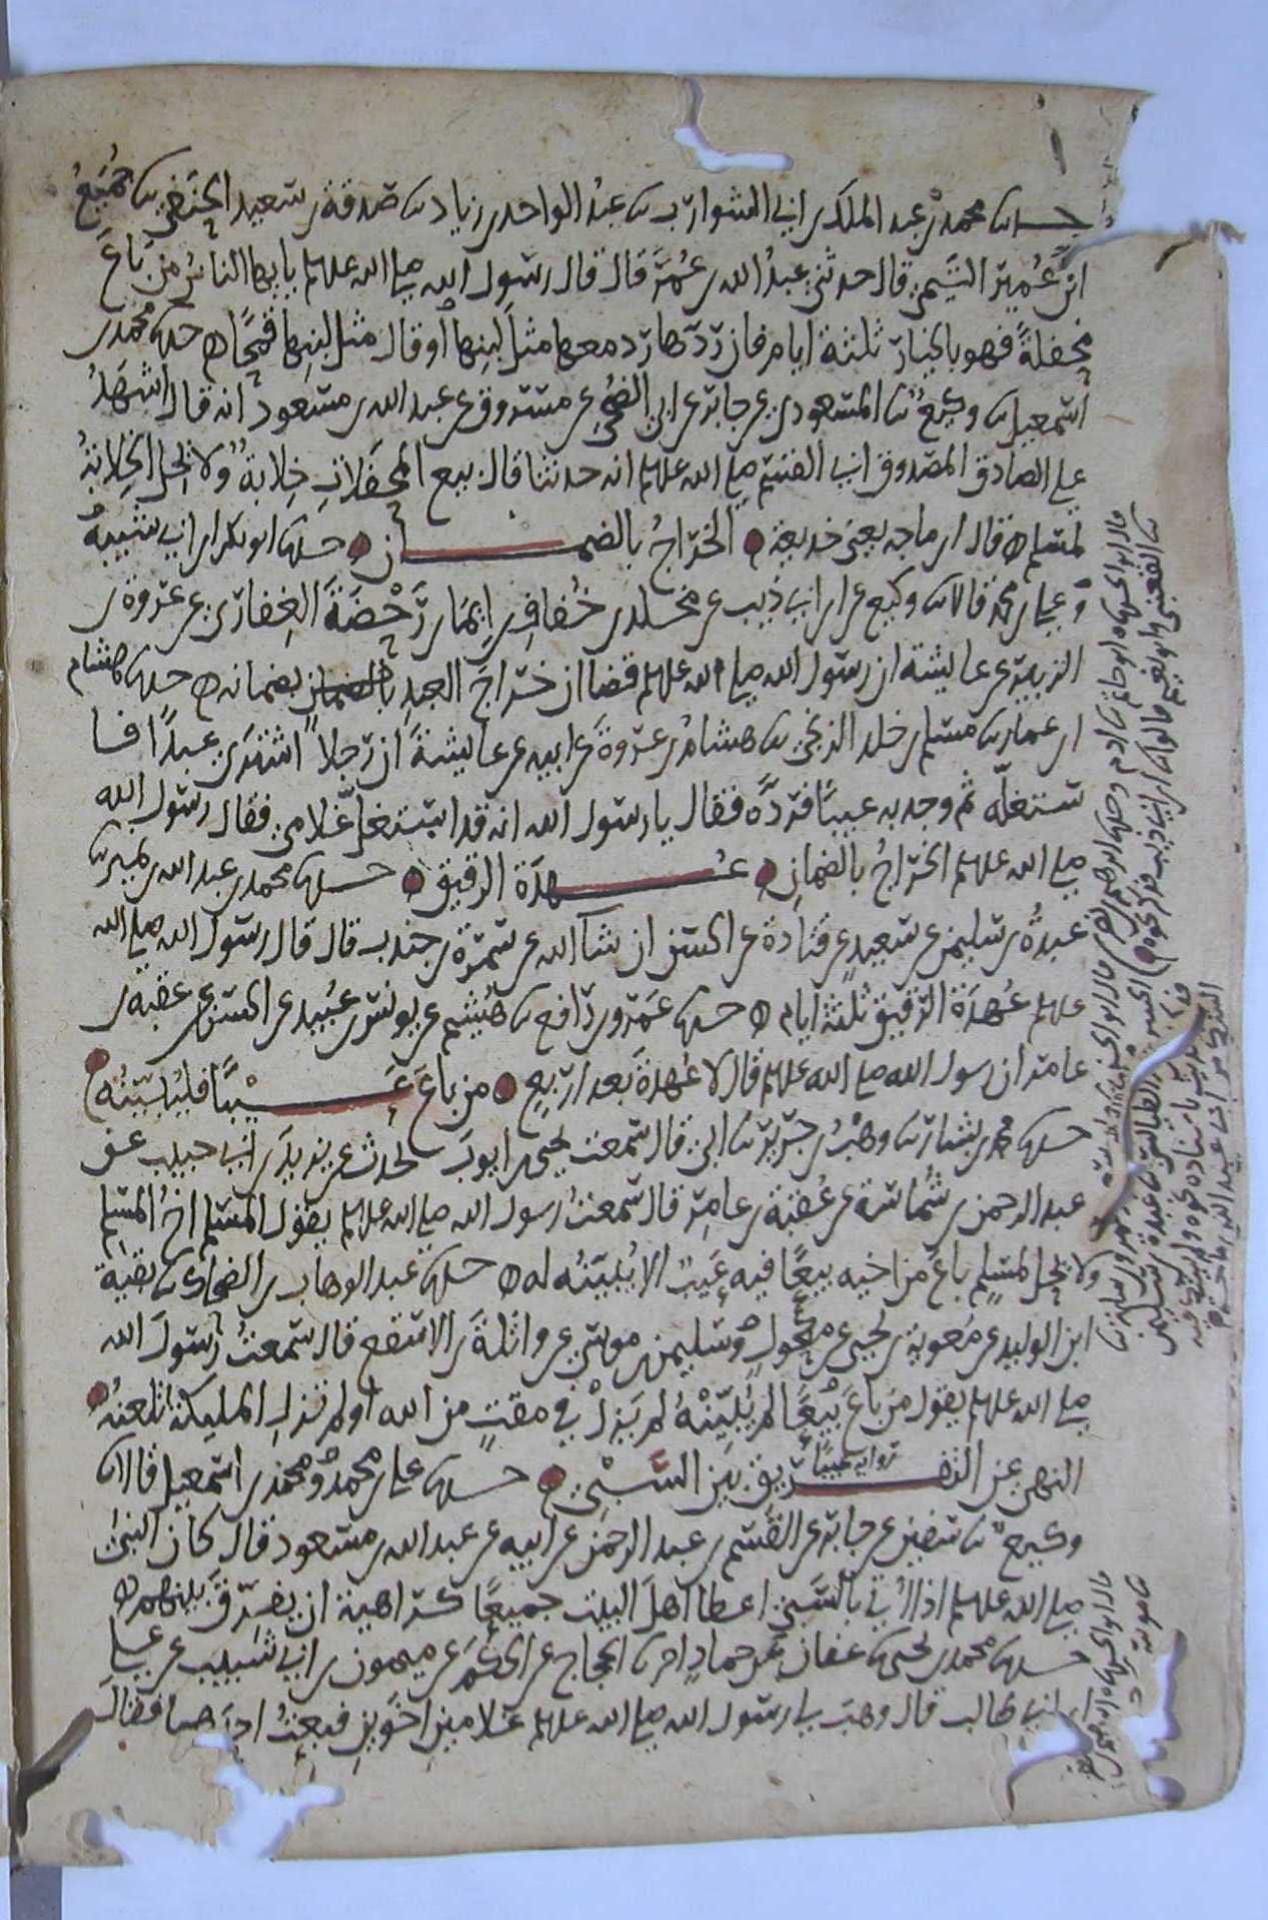 حدثنا محمد بن عبد الملك بن ابي الشوارب ثنا عبد الواحد بن زياد ثنا صدقة بن سعيد الحنفي ثنا جُمَيعُ
ابن عُمير التيمي قال حدثني عبدُ الله بن عُمَرَ قال قال رسول الله صلى الله علىهلم يا ايها الناسُ من بَاعَ
محفلةً فهو بالخيار ثلثة ايام فان ردّها ردّ معها مثلَ لبنِها أو قال مثل لبنِها قمحًا ه حدثنا محمد بن
اسمعيل ثنا وكيعٌ ثنا المسعودي عن جابر عن ابي الضُحى عن مسروق عن عبد الله بن مسعود انه قال اشهَدُ
على الصادق المصدوق ابي القسم صلى الله علىهلم انه حدثنا قال بيع المحفلاتِ خِلابةٌ ولا تحل الخِلابةُ
لمسلم ه قال ابن ماجه يعني خديعة ه الخَرَاجُ بالضمان ه حدثنا ابو بكر ابن ابي شيبةَ
وعلي بن محمد قالا ثنا وكيع عن ابن ابي ذيب عن مخلد بن خُفافِ بن ايمَا بن رَحْضَةَ الغِفاري عن عروة بن
الزبير عن عايشة ان رسول الله صلى الله علىهلم قضا ان خراجَ العبدِ بضمانه ه حدثنا هشام
ابن عمار ثنا مسلم بن خلد الزنجي ثنا هشام بن عروةَ عن ابيه عن عايشةَ ان رجلاً اشترى عبدًا فا
ستغلّه ثم وجد به عيبًا فردَّه فقال يا رسول الله انه قد استغلّ غلامي فقال رسول الله
صلى الله علىهلم الخراجُ بالضمانِ ه عُهدَة الرقيق ه حدثنا محمد بن عبد الله بن نمير ثنا
عبدةُ بن سليمن عن سعيدٍ عن قتادة عن الحسن ان شا الله عن سمرة بن جندب قال قال رسول الله صلى الله
علىهلم عُهدَة الرقيق ثلثة ايام ه حدثنا عَمرو بن رافع ثنا هُشيم عن يونس بن عُبيد عن الحسن عن عقبة بن
عامر ان رسول الله صلى الله علىهلم قال لا عُهدةَ بَعد اربعٍ ه من باعَ عَيْبًا فليُبيّنْه ه
حدثنا محمد بن بشار ثنا وهْبُ بن جرير ثنا ابي قال سمعت يحيى بن ايوبَ يحدث عن يزيدَ بن ابي حبيب عن
عبد الرحمن بن شُماسَة عن عُقبَة بن عامِر قال سمعتُ رسول الله صلى الله علىهلم يقول المسلم اخُ المسلم
ولا يحل لمسلمٍ باعَ من اخيه بيعًا فيه عَيبٌ الا يُبيّنُه له ه حدثنا عبد الوهاب بن الضحاك ثنا بقية
ابن الوليد عن معوية بن يحيى عن مكحولٍ وسليمن بن موسى عن واثلةَ بن الاسقع قال سمعتُ رسولَ الله
صلى الله علىهلم يقول من باعَ بَيْعًا لم يُبيّنْهُ لم يَزلْ في مقتٍ من الله او لم تزلِ المليكة تلعنُه ه
رواية عيبًا
النهي عن التفريق بين السَّبْيِ ه حدثنا علي بن محمد ومحمد بن اسمعيل قالا ثنا
وكيعٌ ثنا سفين عن جابر عن القَسم بن عبد الرحمن عن ابيه عن عبد الله بن مسعود قال كان النبيُّ
صلى الله علىهلم اذا اُتي بالسَبي اعطا اهلَ البيت جميعًا كراهية ان يفرّقَ بينهم ه
حدثنا محمد بن يحيى ثنا عفان عن حمادٍ انا الحجاج عن الحَكَم عن ميمون بن ابي شَبيب عن علي
ابن ابي طالب قال وهَبَ لي رسول الله صلى الله علىهلم غلامين اخوينِ فبعتُ احدهما فقال